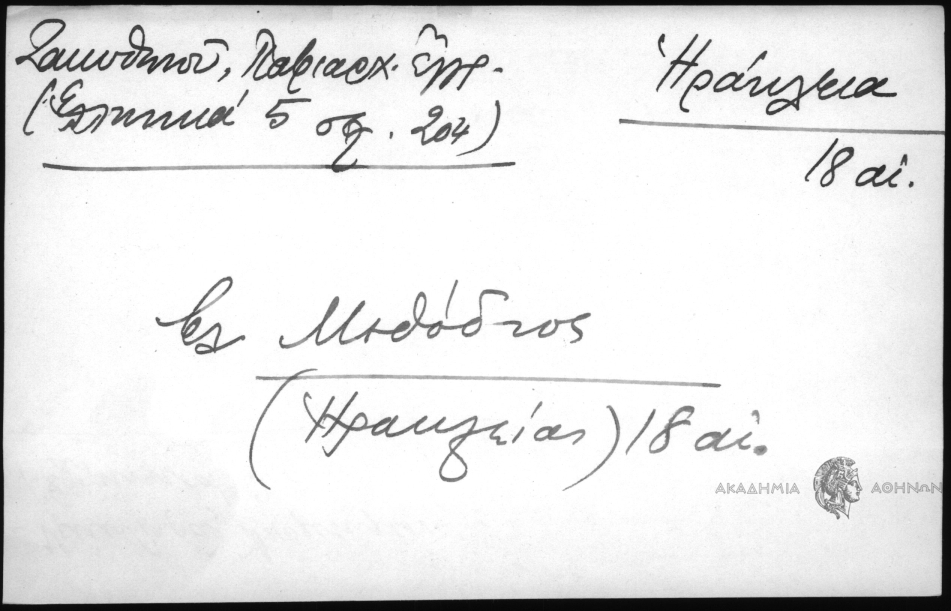 Σακυθηνοῦ, Πατριαρχ. Ἔγγρ.
(Ἑλληνικά 5 σελ. 204)
Ἡράκλεια
18 αἰ.
βλ Μεθόδιος
(Ἡρακλείας) 18 αἰ.
ΑΚΑΔΗΜΙΑ ΑΘΗΝΩΝ